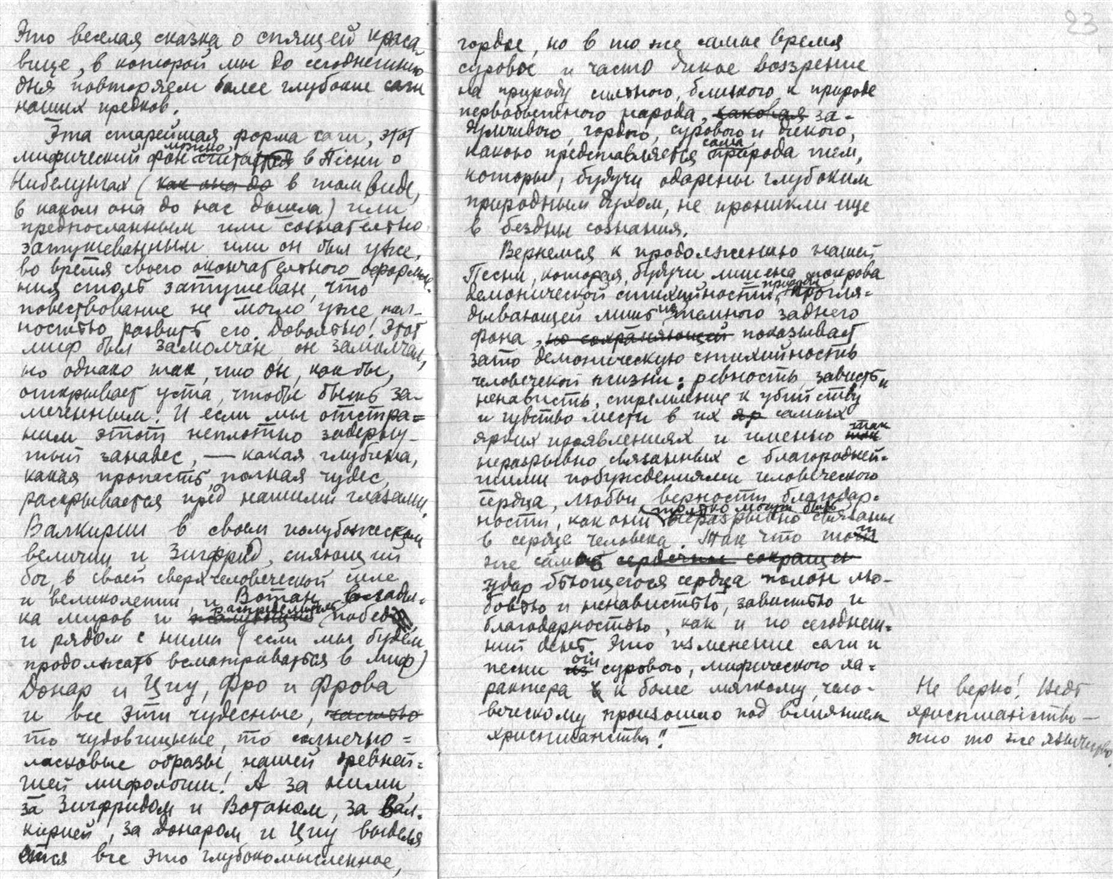 Это веселая сказка о спящей краса
вице, в которой мы до сегоднешнего
дня повторяем более глубокие саги
наших предков.
Эта старейшая форма саги, этот
мифический фон можно считается в Песни о
Нибелунгах (как она до в том виде,
в каком она до нас дошла) или
предпосланным или сознательно
затушеванным или он был уже,
во время своего окончательного оформле-
ния столь затушеван, что
повествование не могло уже пол-
ностью развить его. Довольно! Этот
миф был замолчан, он замолчал,
но однако так, что он, как бы,
открывает уста, чтобы быть за-
меченным. И если мы отстра=
ним этот неплотно задерну-
тый занавес, — какая глубина,
какая пропасть, полная чудес,
раскрывается пред нашими глазами.
Валкирии в своем полубожеском
величии и Зигфрид, сияющий
бог, в своей сверхчеловеческой силе
и великолепии, и Вотан, влады-
ка миров и распределитель побед
и рядом с ними (если мы будем
продолжать всматриваться в миф)
Донар и Циу, Фро и Фрова
и все эти чудесные, частью
то чудовищные, то солнечно=
ласковые образы нашей древней=
шей мифологии! А за ними,
за Зигфридом и Вотаном, за Вал-
кирией, за Донаром и Циу выделя
ется все это глубокомысленное,
23
гордое, но в то же самое время
суровое и часто дикое воззрение
на природу сильного, близкого к природе
первобытного народа, каковая за-
думчивого, гордого, сурового и дикого,
какою представляется сама природа тем,
которые, будучи одарены глубоким
природным духом, не проникли еще
в бездны сознания.
Вернемся к продолжению нашей
Песни, которая, будучи лишена покрова
демонической стихийности природы, прогля-
дывающей лишь из темного заднего
фона, но сохраняющей показывает
зато демоническую стихийность
человеческой жизни: ревность, зависть и
ненависть, стремление к убийству
и чувство мести в их яр самых
ярких проявлениях и именно так
неразрывно связанных с благородней-
шими побуждениями человеческого
сердца, любви, верности, благодар-
ности, как они только могут быть неразрывно связаны
в сердце человека. Так что тот
же самый сердечные сокращен
удар бьющегося сердца полон лю-
бовью и ненавистью, завистью и
благодарностью, как и по сегоднеш-
ний день. Это изменение саги и
песни из от сурового, мифического ха-
рактера к более мягкому, чело-
веческому произошло под влиянием
христианства."
Не верно! Ведь
христианство —
это то же язычество.